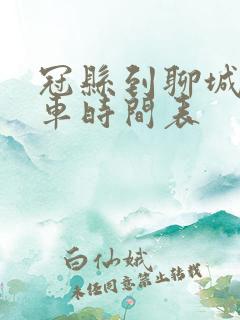 冠縣到聊城
車時間表
白仙娥
未经同意禁止转载